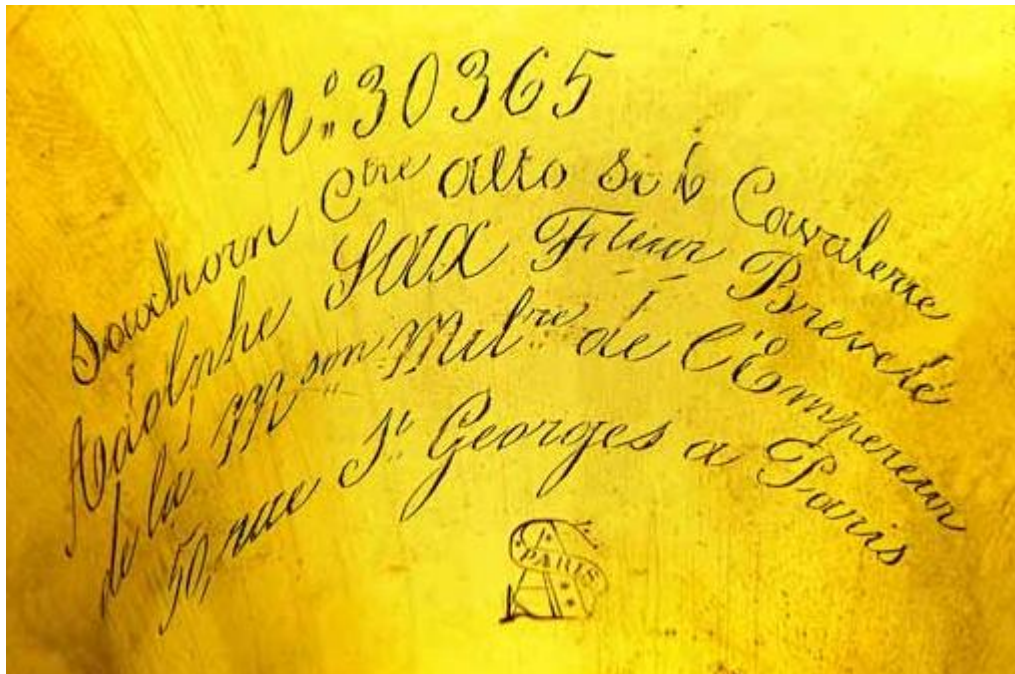 N° 30365
Saxhorn Ctre alto si b Cavalerie
Adolphe SAX Fteur Breveté
de la Mson Milre de l'Empereur
50, rue St Georges a Paris
PARIS